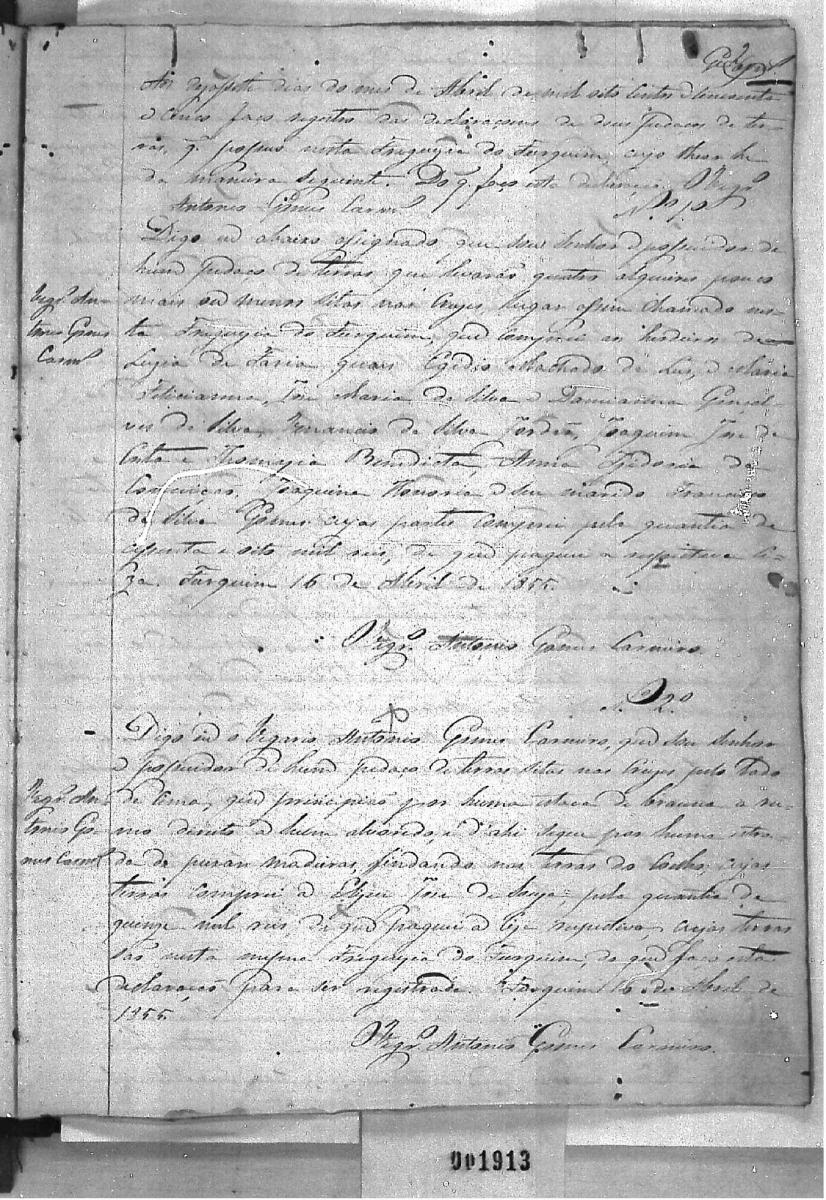 Aos desasete dias do mes de Abril de mil oito centos e sincoenta
e cinco faço registro das declaraçoens de dous pedaços de ter-
ras, q. possuo nesta Freguezia do Furquim, cujo theor he
da maneira seguinte. Do q faço esta declaração. O Vigrº
Antonio Gomes Carnrº
N. 1.º
Digo eu abaixo assignado, que sou senhor e possuidor de
hum pedaço de terras que levarás quatro alqueires pouco
mais ou menos sitas nas Cruzes, lugar assim chamado nes-
ta Freguezia do Furquim, que comprei aos herdeiros de
Luzia de Faria, quais Egidio Machado de Luz, e Maria
Feliciana, Jose Maria da Silva e Damianna Gonsal-
ves da Silva, Venancio da Silva Jordão, Joaquim Jose da
Costa e Thomazia Benedicta, Anna Izidoria da
Conceiçao, Joaquina Honoria e seu marido Francisco
da Silva Gomes cujas partes comprei pela quantia de
e oito mil reis, de que paguei a respectiva Ci-
za. Furquim 16 de Abril de 1855.
O Vigrº. Antonio Gomes Carneiro.
Vigrº An-
tonio Gomes
Carnrº
N. 2.º
Digo eu o Vigario Antonio Gomes Carneiro, que sou senhor
e possuidor de hum pedaço de terras sitas nas Cruzes pelo lado
de cima, que principião por huma estaca de brauna a ru-
mo direito a hum alvoredo, e d'ahi segue por huma estra-
da de maduras, findando nas terras do Coelho, cujas
terras comprei a Jose de Souza, pela quantia de
quinze mil reis, de que paguei a Ciza respectiva, cujas terras
sas nesta mesma Freguezia do Furquim, do que faço esta
declaraçao para ser registrada. Furquim 16 de Abril de
1855.
O Vigrº. Antonio Gomes Carneiro.
Vigrº An-
tonio Go-
mes Carnrº
001913